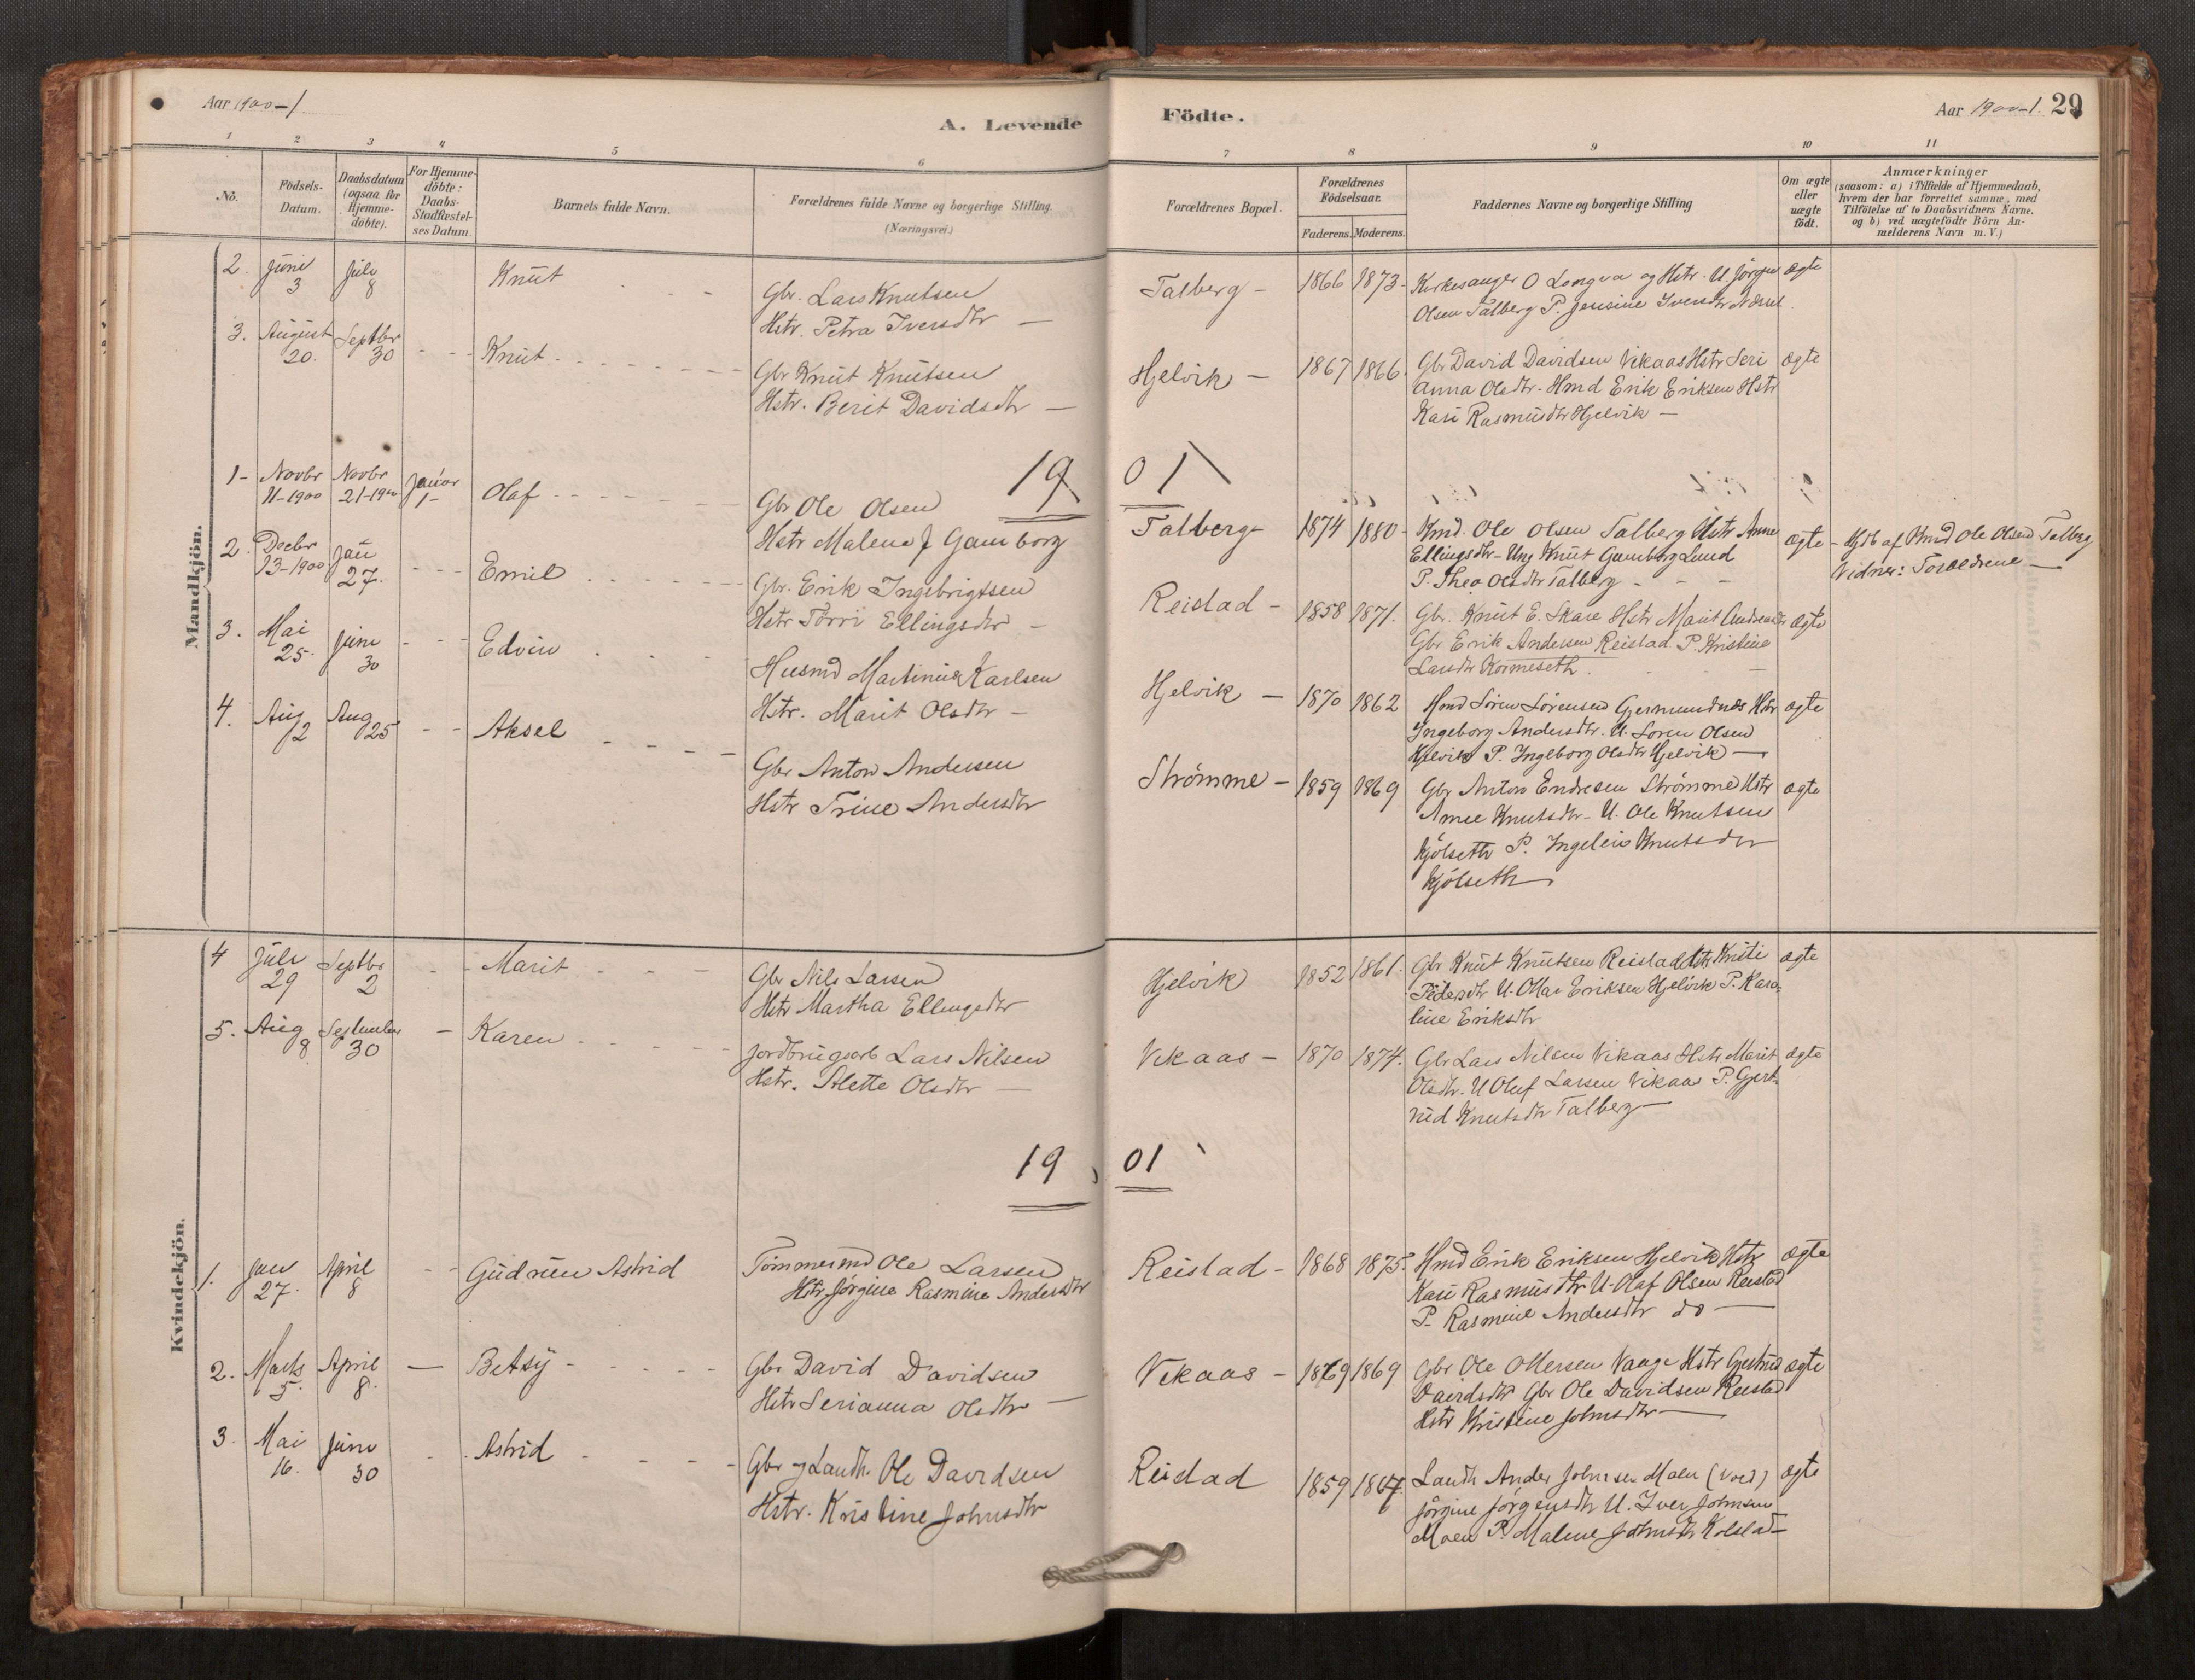 Aar 1900-1
A. Levende Födte.
Aar 1900-1. 29
1 2 3 4 5 6 7 8 9 10 11
No.
Födsels-Datum.
Daabsdatum (ogsaa for Hjemme-döbte).
For Hjemme-döbte: Daabs-Stadfæstel-ses Datum.
Barnets fulde Navn.
Forældrenes fulde Navne og borgerlige Stilling. (Næringsvei.)
Forældrenes Bopæl.
Forældrenes Födselsaar.
Faderens. Moderens.
Faddernes Navne og borgerlige Stilling
Om ægte eller uægte födt.
Anmærkninger
(saasom: a) i Tilfælde af Hjemmedaab,
hvem der har forrettet samme, med
Tilföielse af to Daabsvidners Navne,
og b) ved uægtefödte Börn An-
melderens Navn m. V.)
Mandkjön.
2. Juni 3 Juli 8 Knut
Gbr. Lars Knutsen
Hstr. Petra Iversdtr —
Talberg - 1866 1873-
Kirkesanger O Longva og Hstr. U. Jörgen
Olsen Talberg P. Jensine Iversdtr
ægte
3. August 20. Septbr 30 Knut
Gbr Knut Knutsen
Hstr. Berit Davidsdtr —
Hjelvik - 1867 1866.
Gbr David Davidsen Vikaas Hstr Seri
Anna Olsdtr. Hmd Erik Eriksen Hstr
Kari Rasmusdtr Hjelvik —
ægte
1901
1- Novbr 11-1900 Novbr 21-1900 Januar 1- Olaf
Gbr Ole Olsen
Hstr Malena J Gamborg
Talberg- 1874 1880-
Kmd. Ole Olsen Talberg Hstr Anne
Ellingsdtr- Ung Knut Gamborg Lund
P. Thea Olsdtr Talberg - - -
ægte - Hjdt af Kmd Ole Olsen Talberg
Vidner: Forældrene —
2. Decbr 13-1900 Jan 27. Emil
Gbr. Erik Ingebrigtsen
Hstr Torri Ellingsdtr -
Reistad - 1858 1871.
Gbr. Knut E. Skare Hstr Marit Andreasdtr
Gbr Erik Andersen Reistad P. Kristine
Larsdtr Kormeseth.
ægte
3. Mai 25. Juni 30 Edvin
Husmd Martinus Karlsen
Hstr. Marit Olsdtr -
Hjelvik - 1870 1862
Hmd Sören Sörensen Gjermundnes Hstr
Ingeborg Andersdtr. U. Soren Olsen
Hjelvik P. Ingeborg Olsdtr Hjelvik —
ægte
4. Aug 2 Aug 25 Aksel
Gbr Anton Andersen
Hstr Trine Andersdtr
Strömme - 1859 1869
Gbr Anton Endresen Strömme Hstr
Anne Knutsdtr- U. Ole Knutsen
Kjölseth P. Ingeleiv Knutsdtr
Kjölseth
ægte
Kvindekjön.
4 Juli 29 Septbr 2 Marit
Gbr Nils Larsen
Hstr Martha Ellingsdtr
Hjelvik 1852 1861.
Gbr Knut Knutsen Reistad Hstr Kristi
Pedersdtr U. Ottar Eriksen Hjelvik P. Karo-
line Eriksdtr
ægte
5. Aug 8 September 30 — Karen
Jordbrugsarb Lars Nilsen
Hstr. Alette Olsdtr —
Vikaas - 1870 1874.
Gbr Lars Nilsen Vikaas Hstr Marit
Olsdtr. U Oluf Larsen Vikaas P. Gjert-
rud Knutsdtr Talberg —
ægte
1901
1. Jan 27. April 8 Gudrun Astrid
Tömmermd Ole Larsen
Hstr Jörgine Rasmine Andersdtr
Reistad - 1868 1875.
Hmd Erik Eriksen Hjelvik Hstr
Kari Rasmusdtr U. Olaf Olsen Reistad
P. Rasmine Andersdtr do —
ægte
2. Marts 5. April 8. — Betsy
Gbr David Davidsen
Hstr Serianna Olsdtr —
Vikaas - 1869 1869
Gbr Ole Ottersen Vaage Hstr Gjertrud
Davidsdtr Gbr Ole Davidsen Reistad
Hstr Kristine Johnsdtr —
ægte
3. Mai 16. Juni 30 Astrid
Gbr og Landh. Ole Davidsen
Hstr. Kristine Johnsdtr
Reistad 1859 1867.
Landh Anders Johnsen Moen (Vold)
Jörgine Jörgensdtr U. Iver Johnsen
Moen P. Malene Johnsdtr Kolstad —
ægte